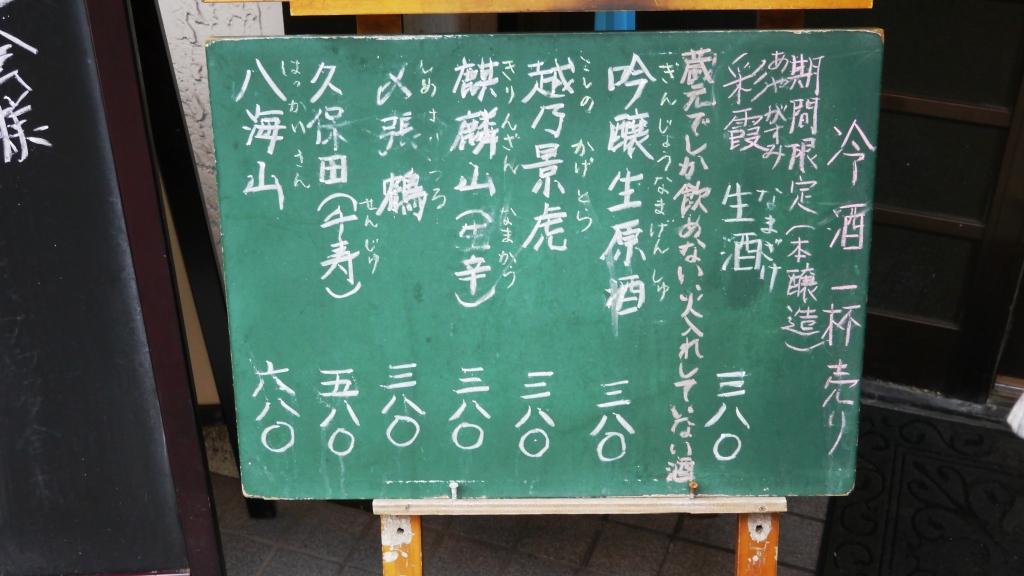 冷酒 一杯売り
期間限定(本醸造)
あやがすみ なまざけ
彩霞 生酒 三八〇
蔵元でしか飲めない火入れしてない酒
ぎんじょうなまげんしゅ
吟醸生原酒 三八〇
こしの かげとら
越乃景虎 三八〇
きりんざん なまから
麒麟山(生辛) 三八〇
しめ つる
〆張鶴 三八〇
せんじゅ
久保田(千寿) 五八〇
はっかいさん
八海山 六八〇
様